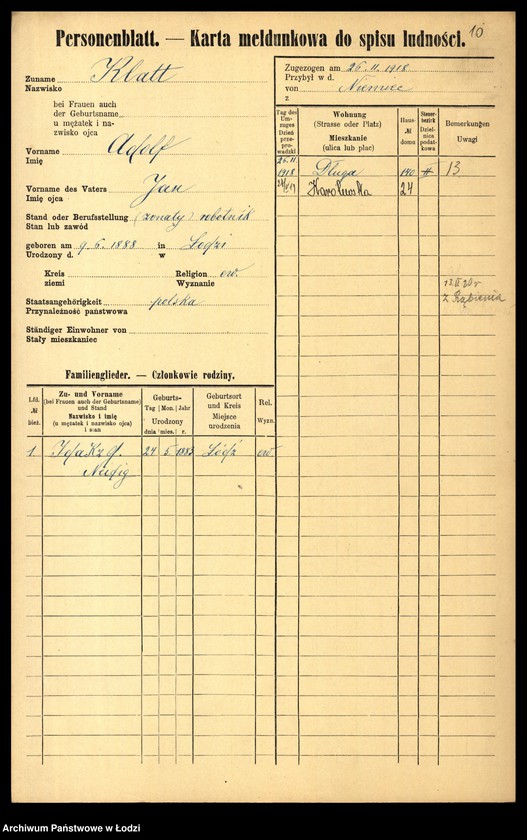 10
Personenblatt. — Karta meldunkowa do spisu ludności.
Zuname Klatt
Nazwisko
bei Frauen auch
der Geburtsname
u mężatek i na-
zwisko ojca
Vorname Adolf
Imię
Vorname des Vaters Jan
Imię ojca
Stand oder Berufsstellung (żonaty) robotnik
Stan lub zawód
geboren am 9. 6. 1888 in Łodzi
Urodzony d. w
Kreis Religion ew.
ziemi Wyznanie
Staatsangehörigkeit polska
Przynależność państwowa
Ständiger Einwohner von
Stały mieszkaniec
Familienglieder. — Członkowie rodziny.
Lfd. № bież.
Zu- und Vorname
(bei Frauen auch der Geburtsname)
und Stand
Nazwisko i imię
(u mężatek i nazwisko ojca)
i stan
Geburts-
Tag Mon. Jahr
Urodzony
dnia mies. r.
Geburtsort
und Kreis
Miejsce
urodzenia
Rel.
Wyzn.
1. Ida 24 5 1883 Łódź ew
Zugezogen am 26. 11. 1918
Przybył w d.
von Niemiec
z
Tag des
Um-
zuges
Dzień
prze-
prowadzki
Wohnung
(Strasse oder Platz)
Mieszkanie
(ulica lub plac)
Haus-
№
domu
Steuer-
bezirk
Dziel-
nica
podat-
kowa
Bemerkungen
Uwagi
26. 11.
1918 Długa 140 13
Karolewska 24
z Rąbienia
Archiwum Państwowe w Łodzi